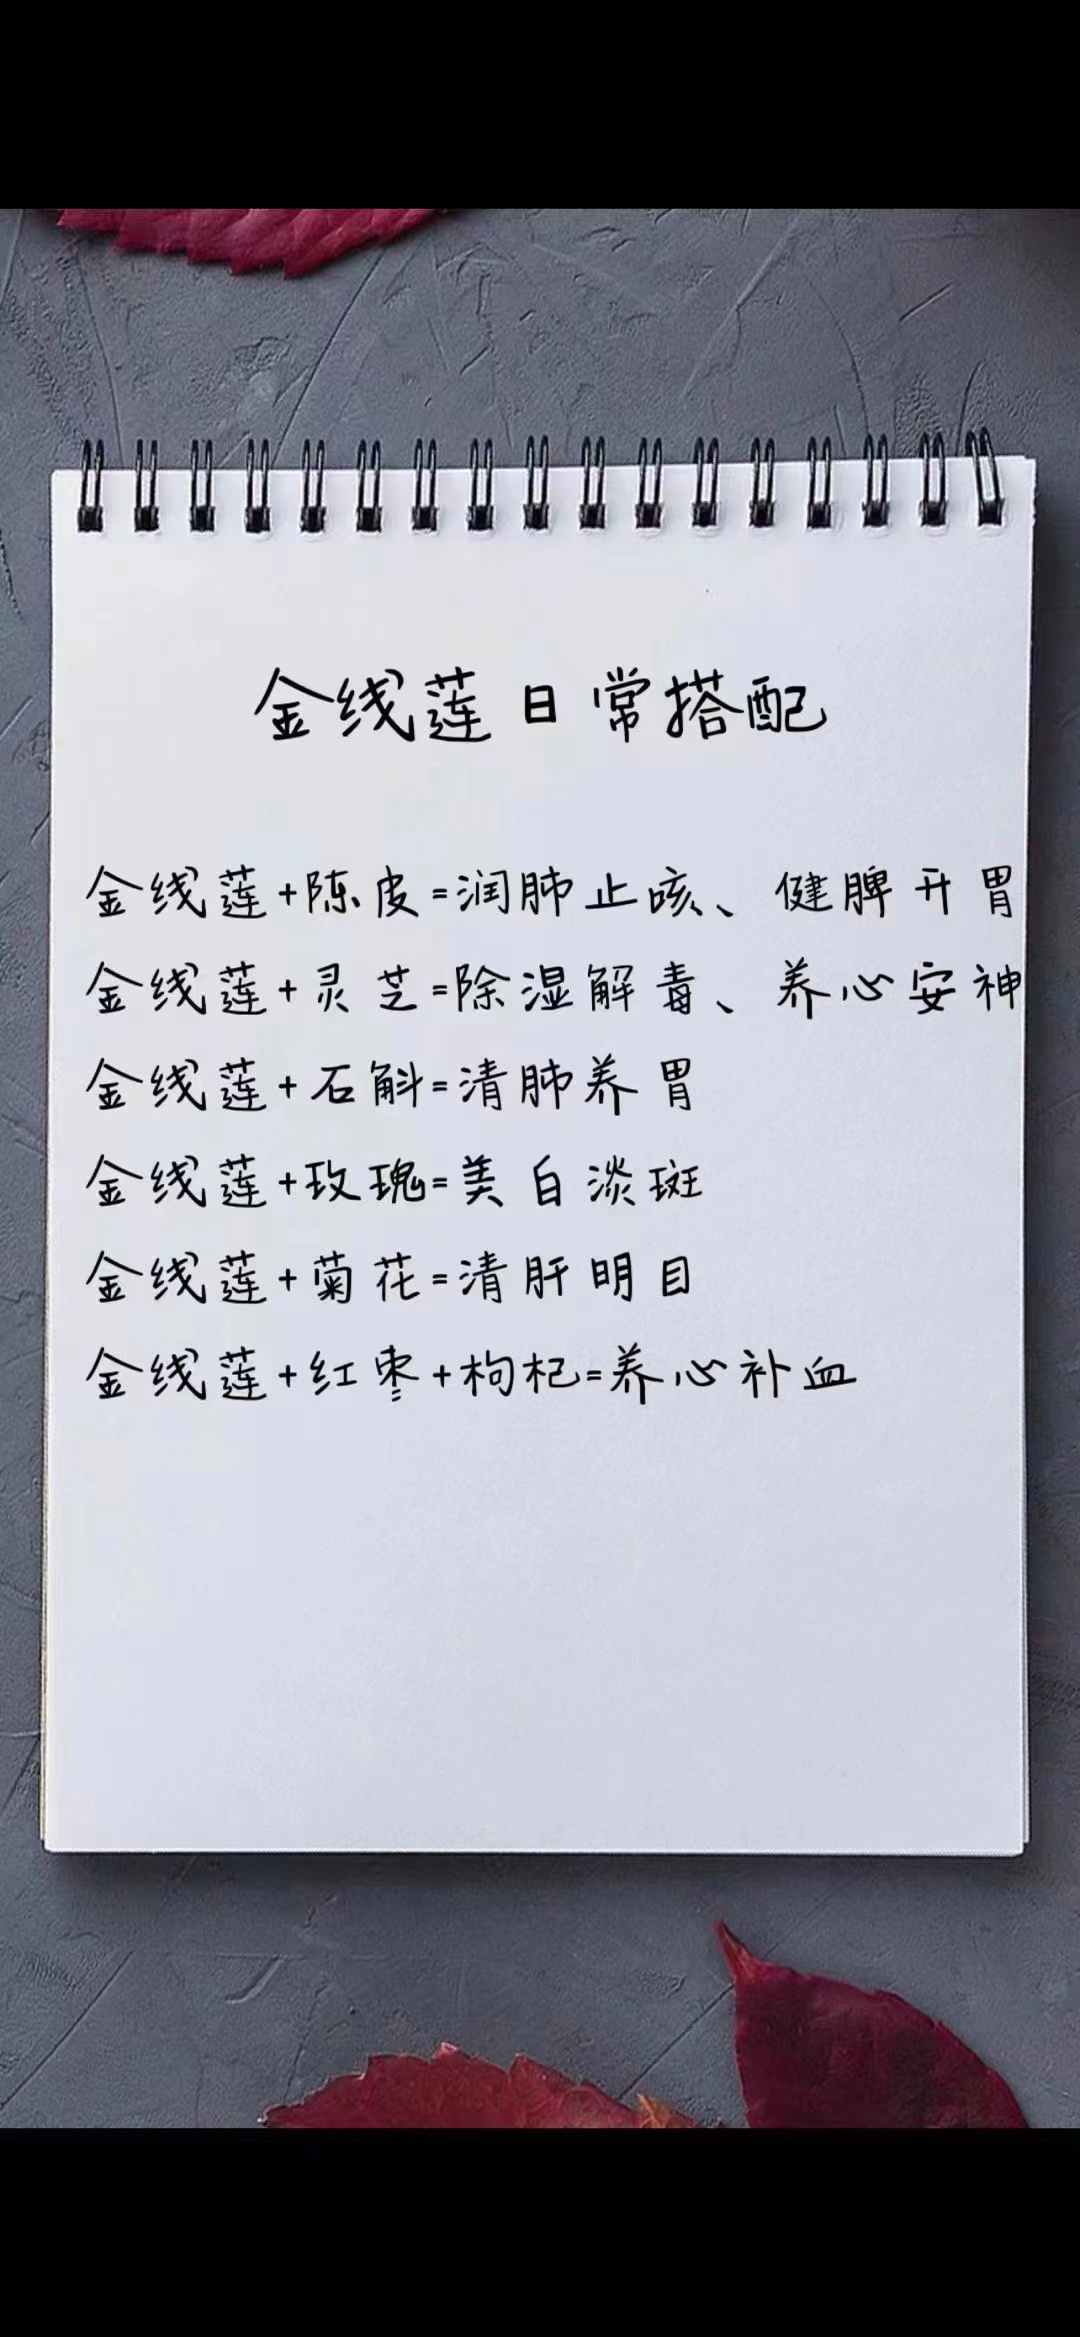 金线莲日常搭配
金线莲+陈皮=润肺止咳、健脾开胃
金线莲+灵芝=除湿解毒、养心安神
金线莲+石斛=清肺养胃
金线莲+玫瑰=美白淡斑
金线莲+菊花=清肝明目
金线莲+红枣+枸杞=养心补血